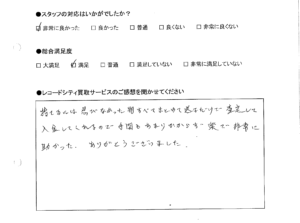 ●スタッフの対応はいかがでしたか?
☑非常に良かった □良かった □普通 □良くない □非常に良くない
●総合満足度
□大満足 ☑満足 □普通 □満足していない □非常に満足していない
●レコードシティ買取サービスのご感想を聞かせてください
捨てるには 送るだけで 査定して
入金してくれるので 手間もあまりかからず 楽で 非常に
助かった。ありがとうございました。